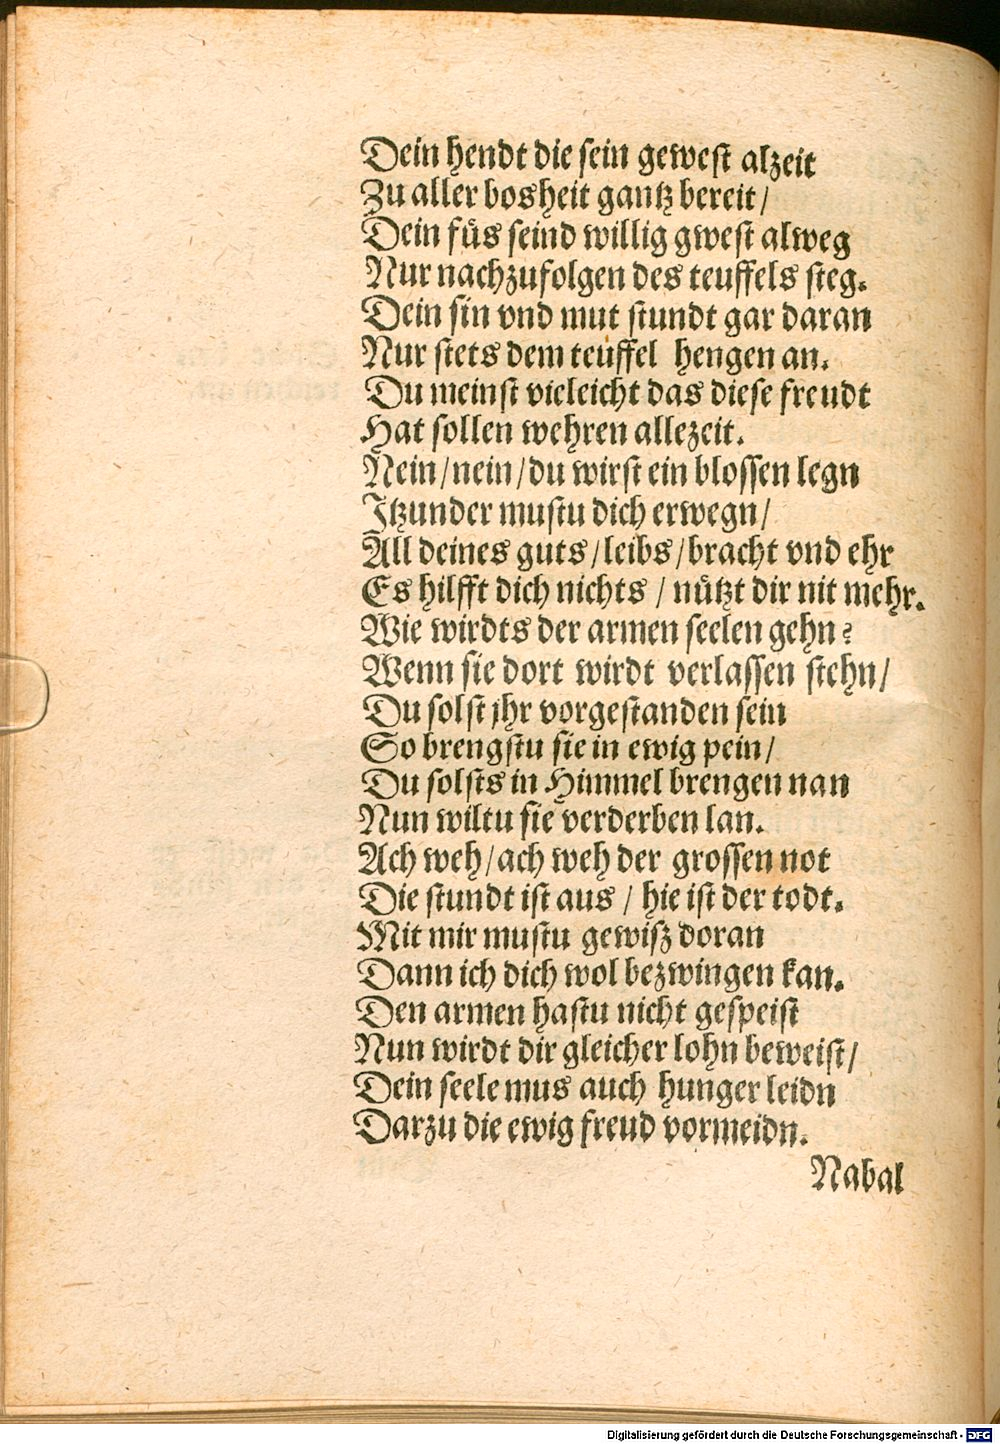 Dein hendt die sein gewest alzeit
Zu aller bosheit gantz bereit /
Dein füs seind willig gwest alweg
Nur nachzufolgen des teuffels steg.
Dein sin vnd mut stundt gar daran
Nur stets dem teuffel hengen an.
Du meinst vieleicht das diese freudt
Hat sollen wehren allezeit.
Nein / nein / du wirst ein blossen legn
Itzunder mustu dich erwegn /
All deines guts / leibs / bracht vnd ehr
Es hilfft dich nichts / nützt dir nit mehr.
Wie wirdts der armen seelen gehn?
Wenn sie dort wirdt verlassen stehn /
Du solst jhr vorgestanden sein
So brengstu sie in ewig pein /
Du solsts in Himmel brengen nan
Nun wiltu sie verderben lan.
Ach weh / ach weh der grossen not
Die stundt ist aus / hie ist der todt.
Mit mir mustu gewisz doran
Dann ich dich wol bezwingen kan.
Den armen hastu nicht gespeist
Nun wirdt dir gleicher lohn beweist /
Dein seele mus auch hunger leidn
Darzu die ewig freud vormeidn.
Nabal
Digitalisierung gefördert durch die Deutsche Forschungsgemeinschaft - DFG